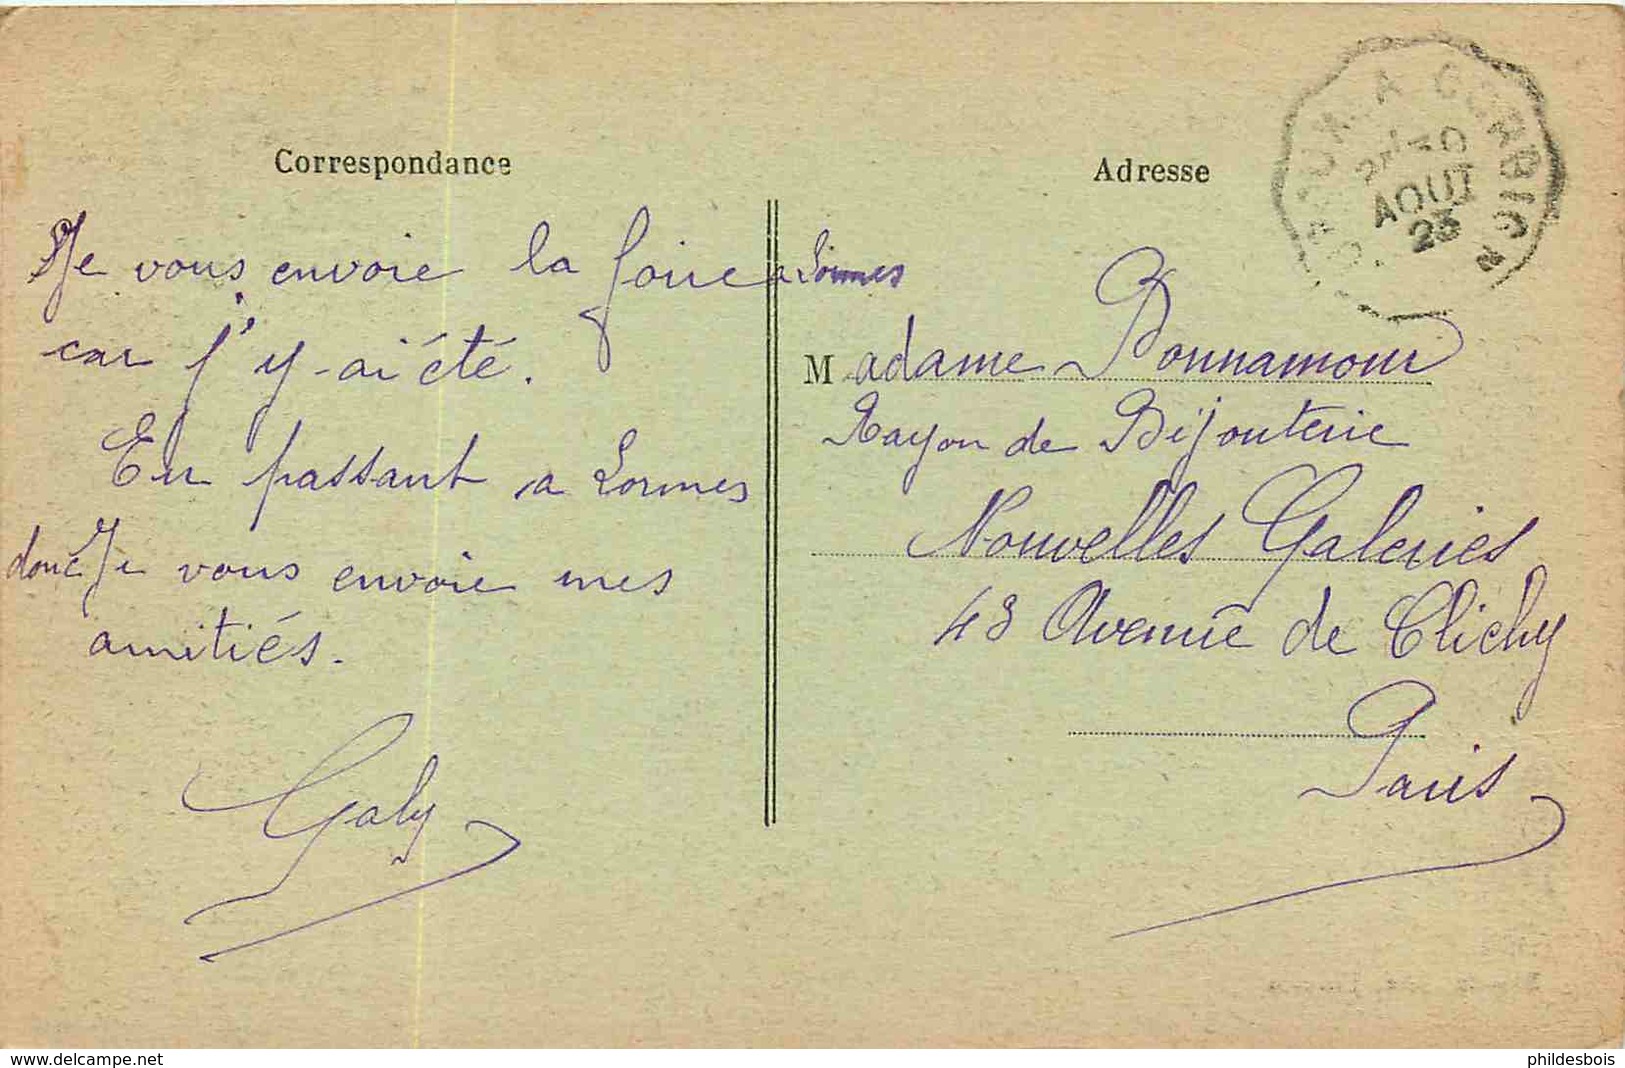 Correspondance
Je vous envoie la foire a Lormes
car j'y-ai été.
En passant a Lormes
donc Je vous envoie mes
amitiés.
Galy
Adresse
Madame Bonnamour
Rayon de Bijouterie
Nouvelles Galeries
43 Avenue de Clichy
Paris
A CORBIGN
30
AOUT
23
www.delcampe.net
phildesbois